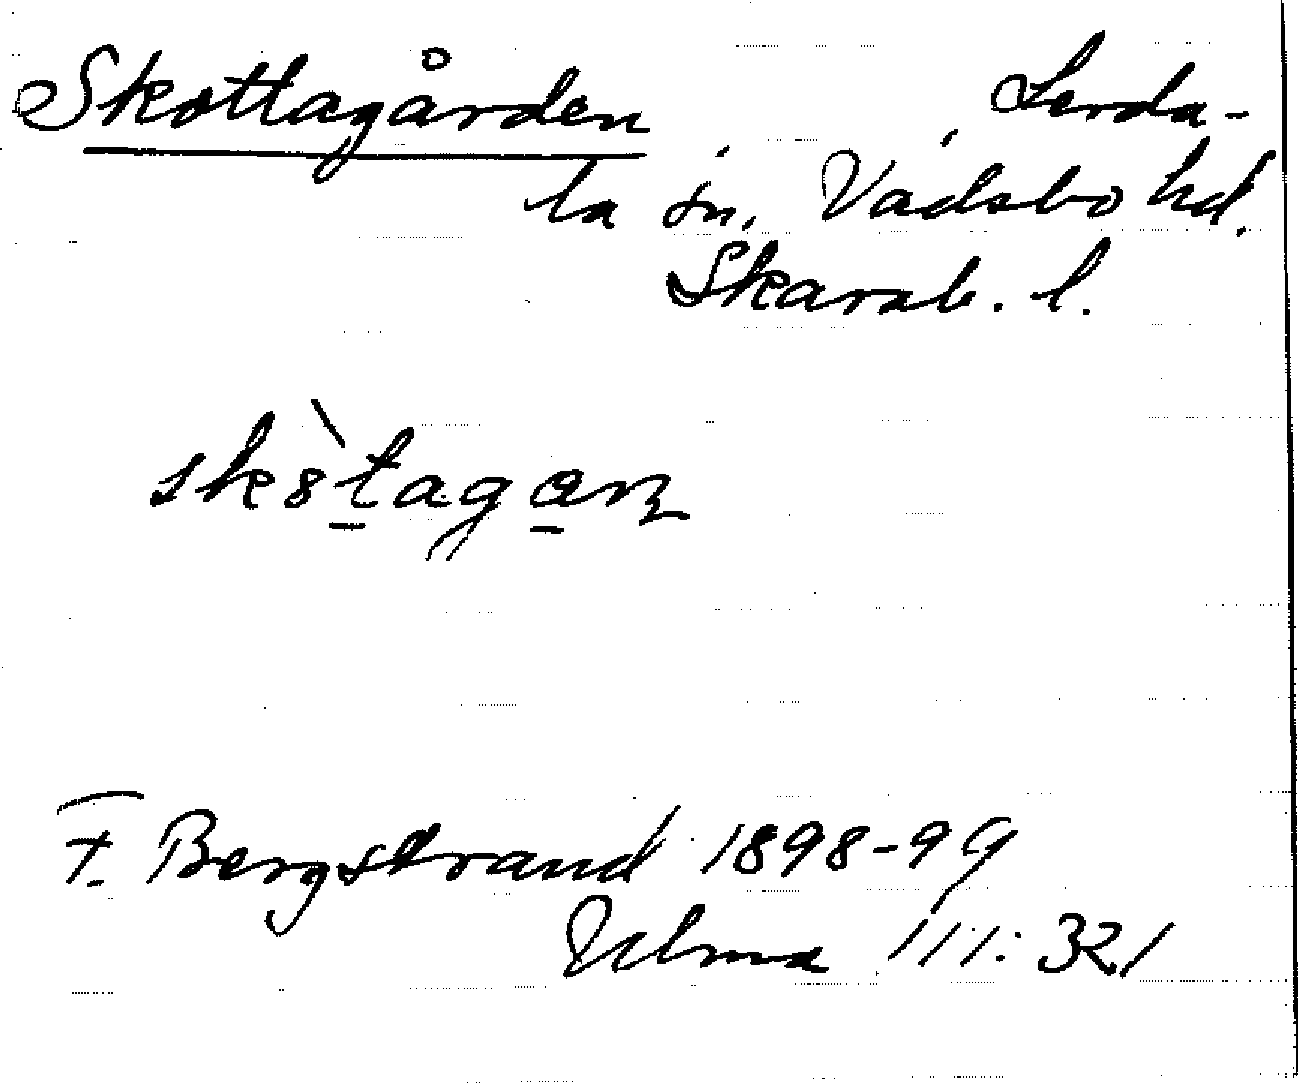 Skottagården Lerda-
la sn, Vadsbo hd.
Skarab. l.
F. Bergstrand 1898-99
Ulma 111:321